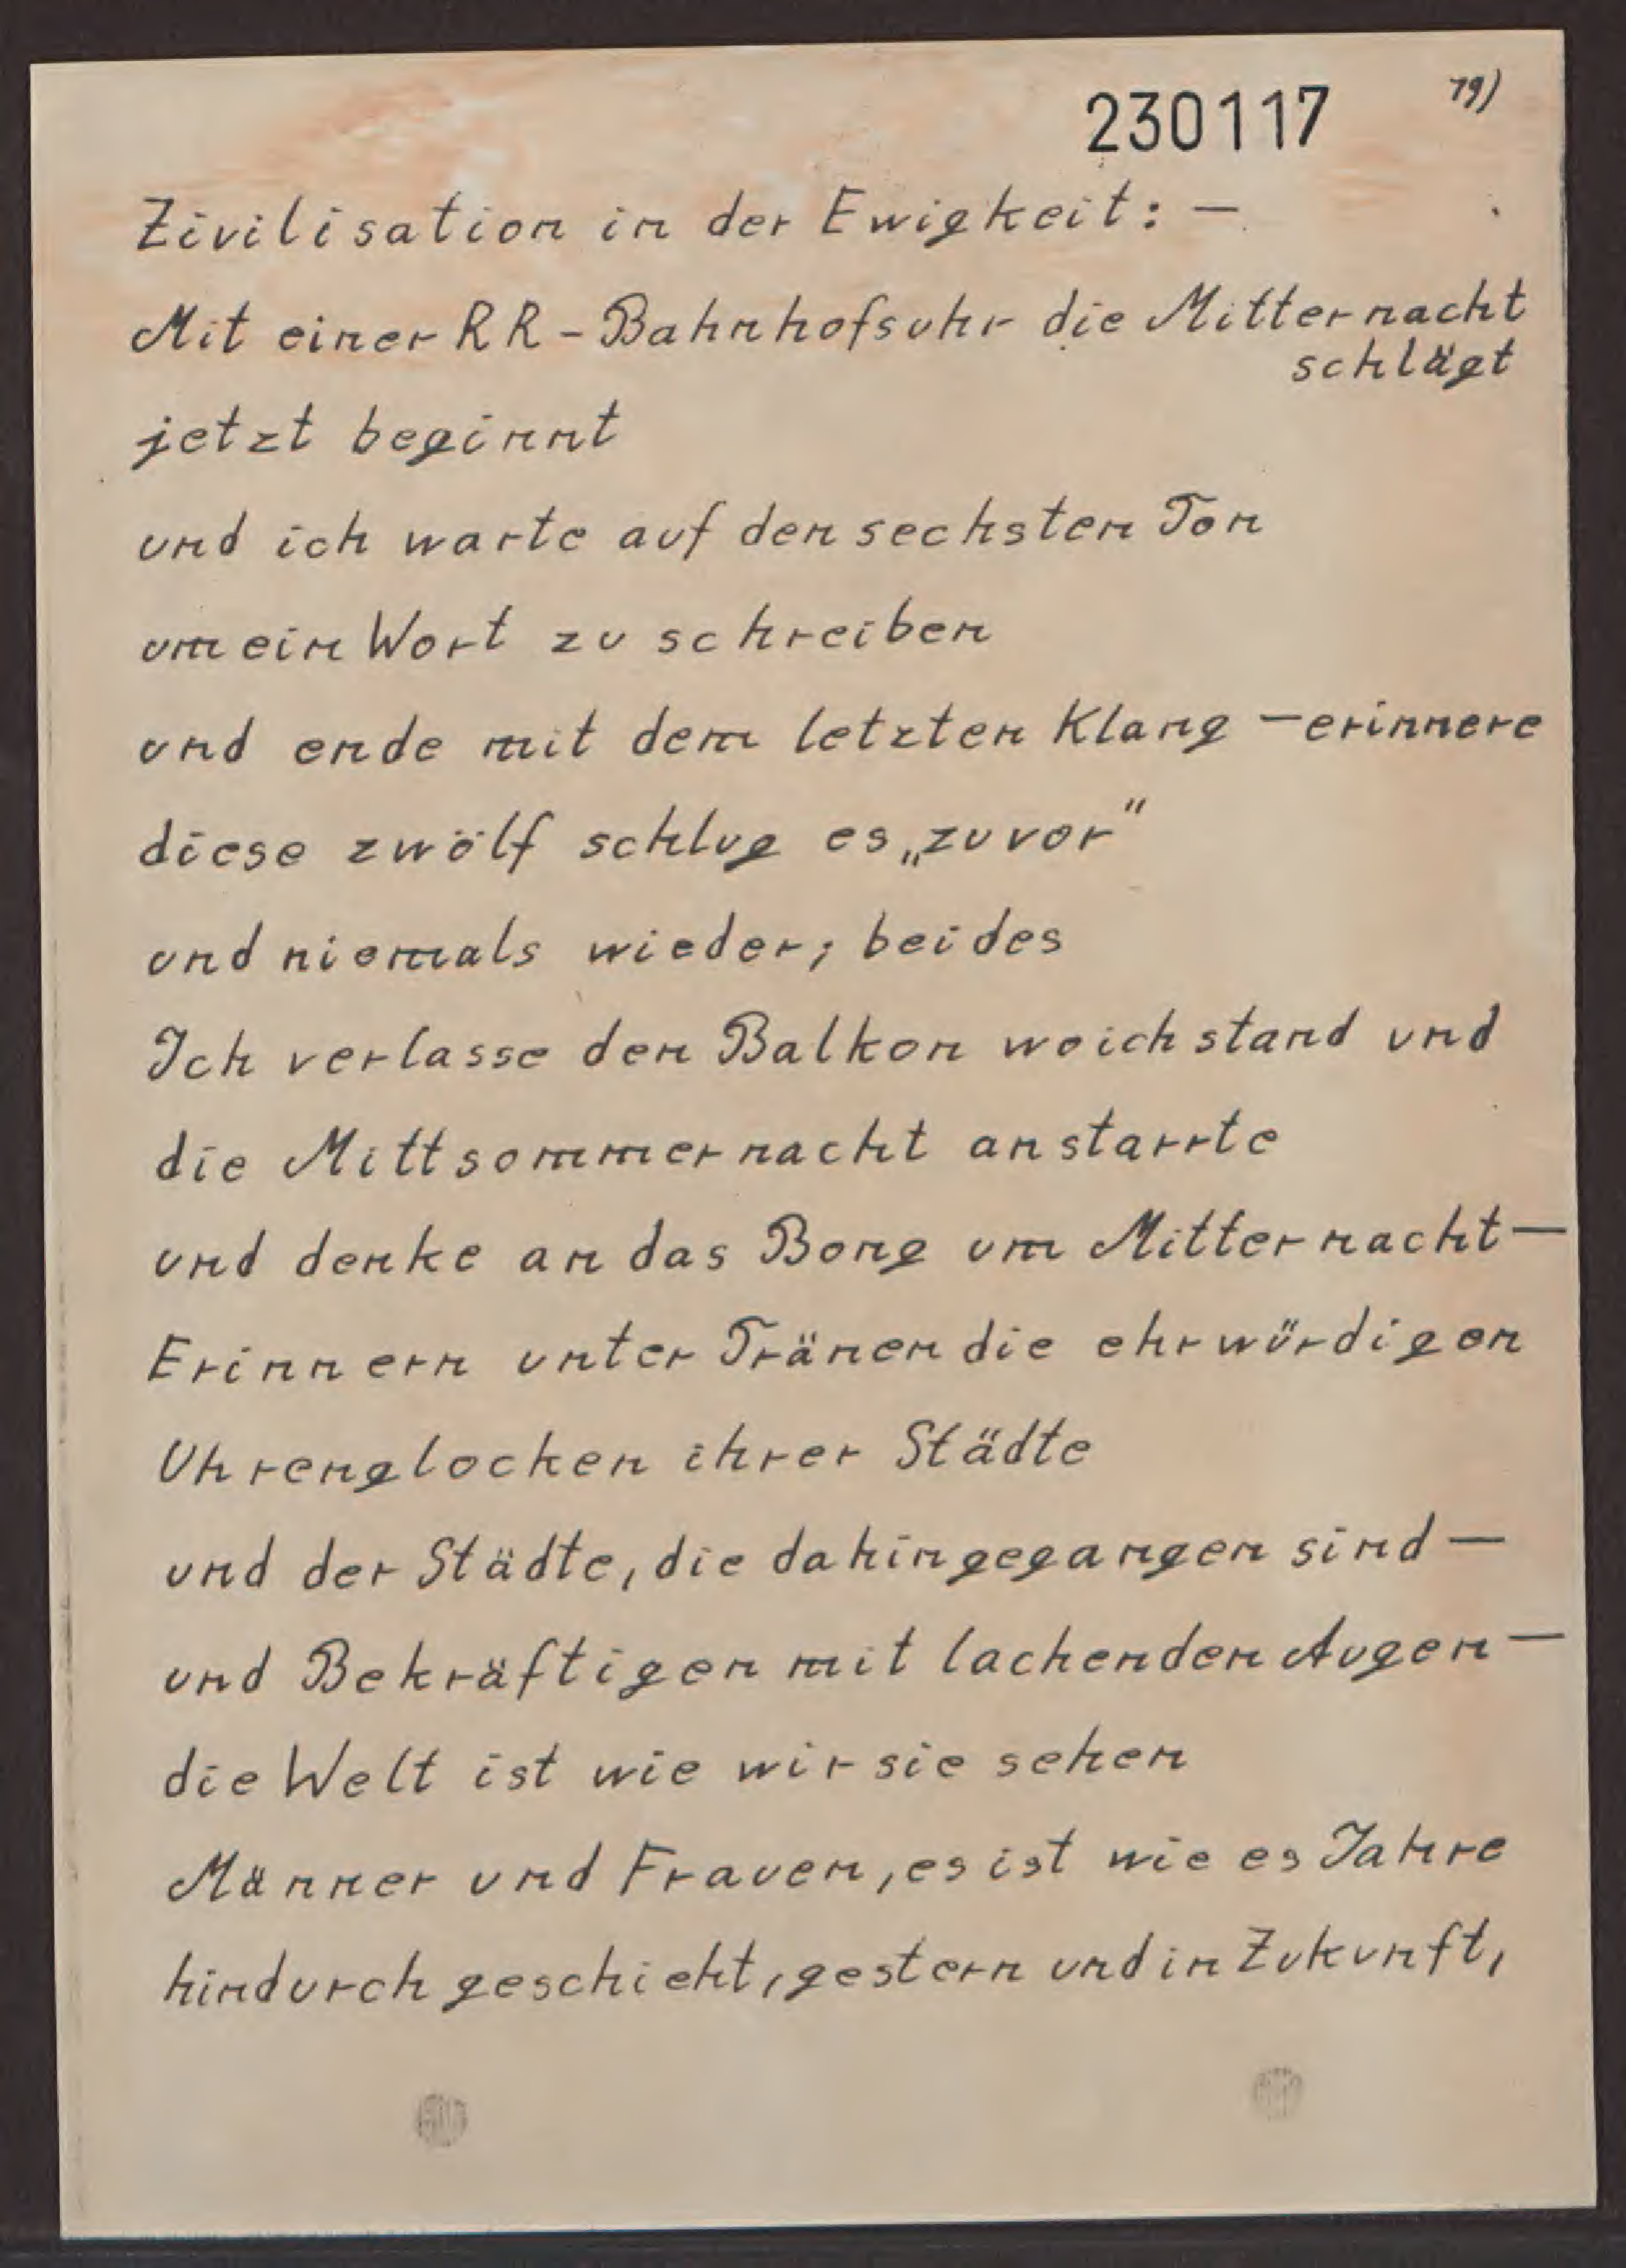 230117
19)
Zivilisation in der Ewigkeit: —
Mit einer RR - Bahnhofsuhr die Mitternacht
schlägt
jetzt beginnt
und ich warte auf den sechsten Ton
um ein Wort zu schreiben
und ende mit dem letzten Klang — erinnere
diese zwölf schlug es „zuvor"
und niemals wieder; beides
Ich verlasse den Balkon wo ich stand und
die Mittsommernacht anstarrte
und denke an das Bong um Mitternacht —
Erinnern unter Tränen die ehrwürdigen
Uhrenglocken ihrer Städte
und der Städte, die dahingegangen sind —
und Bekräftigen mit lachenden Augen —
die Welt ist wie wir sie sehen
Männer und Frauen, es ist wie es Jahre
hindurch geschieht, gestern und in Zukunft,